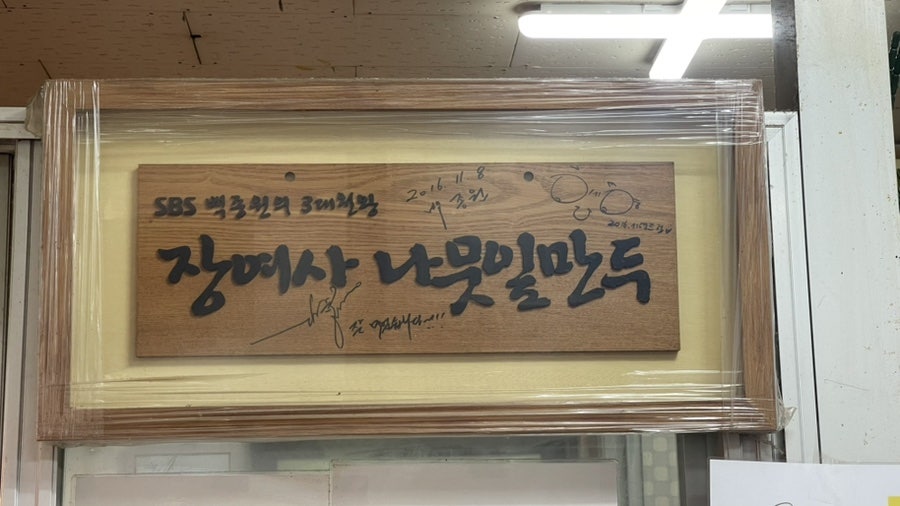 SBS 백종원의 3대천왕
2016. 11. 8
종원
2016.
장여사 나뭇잎만두
잘 먹었습니다~!!!